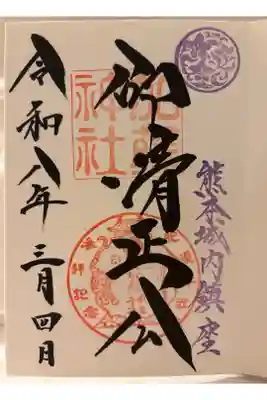 熊本城内鎮座
仰清正公
加藤神社
令和八年三月四日